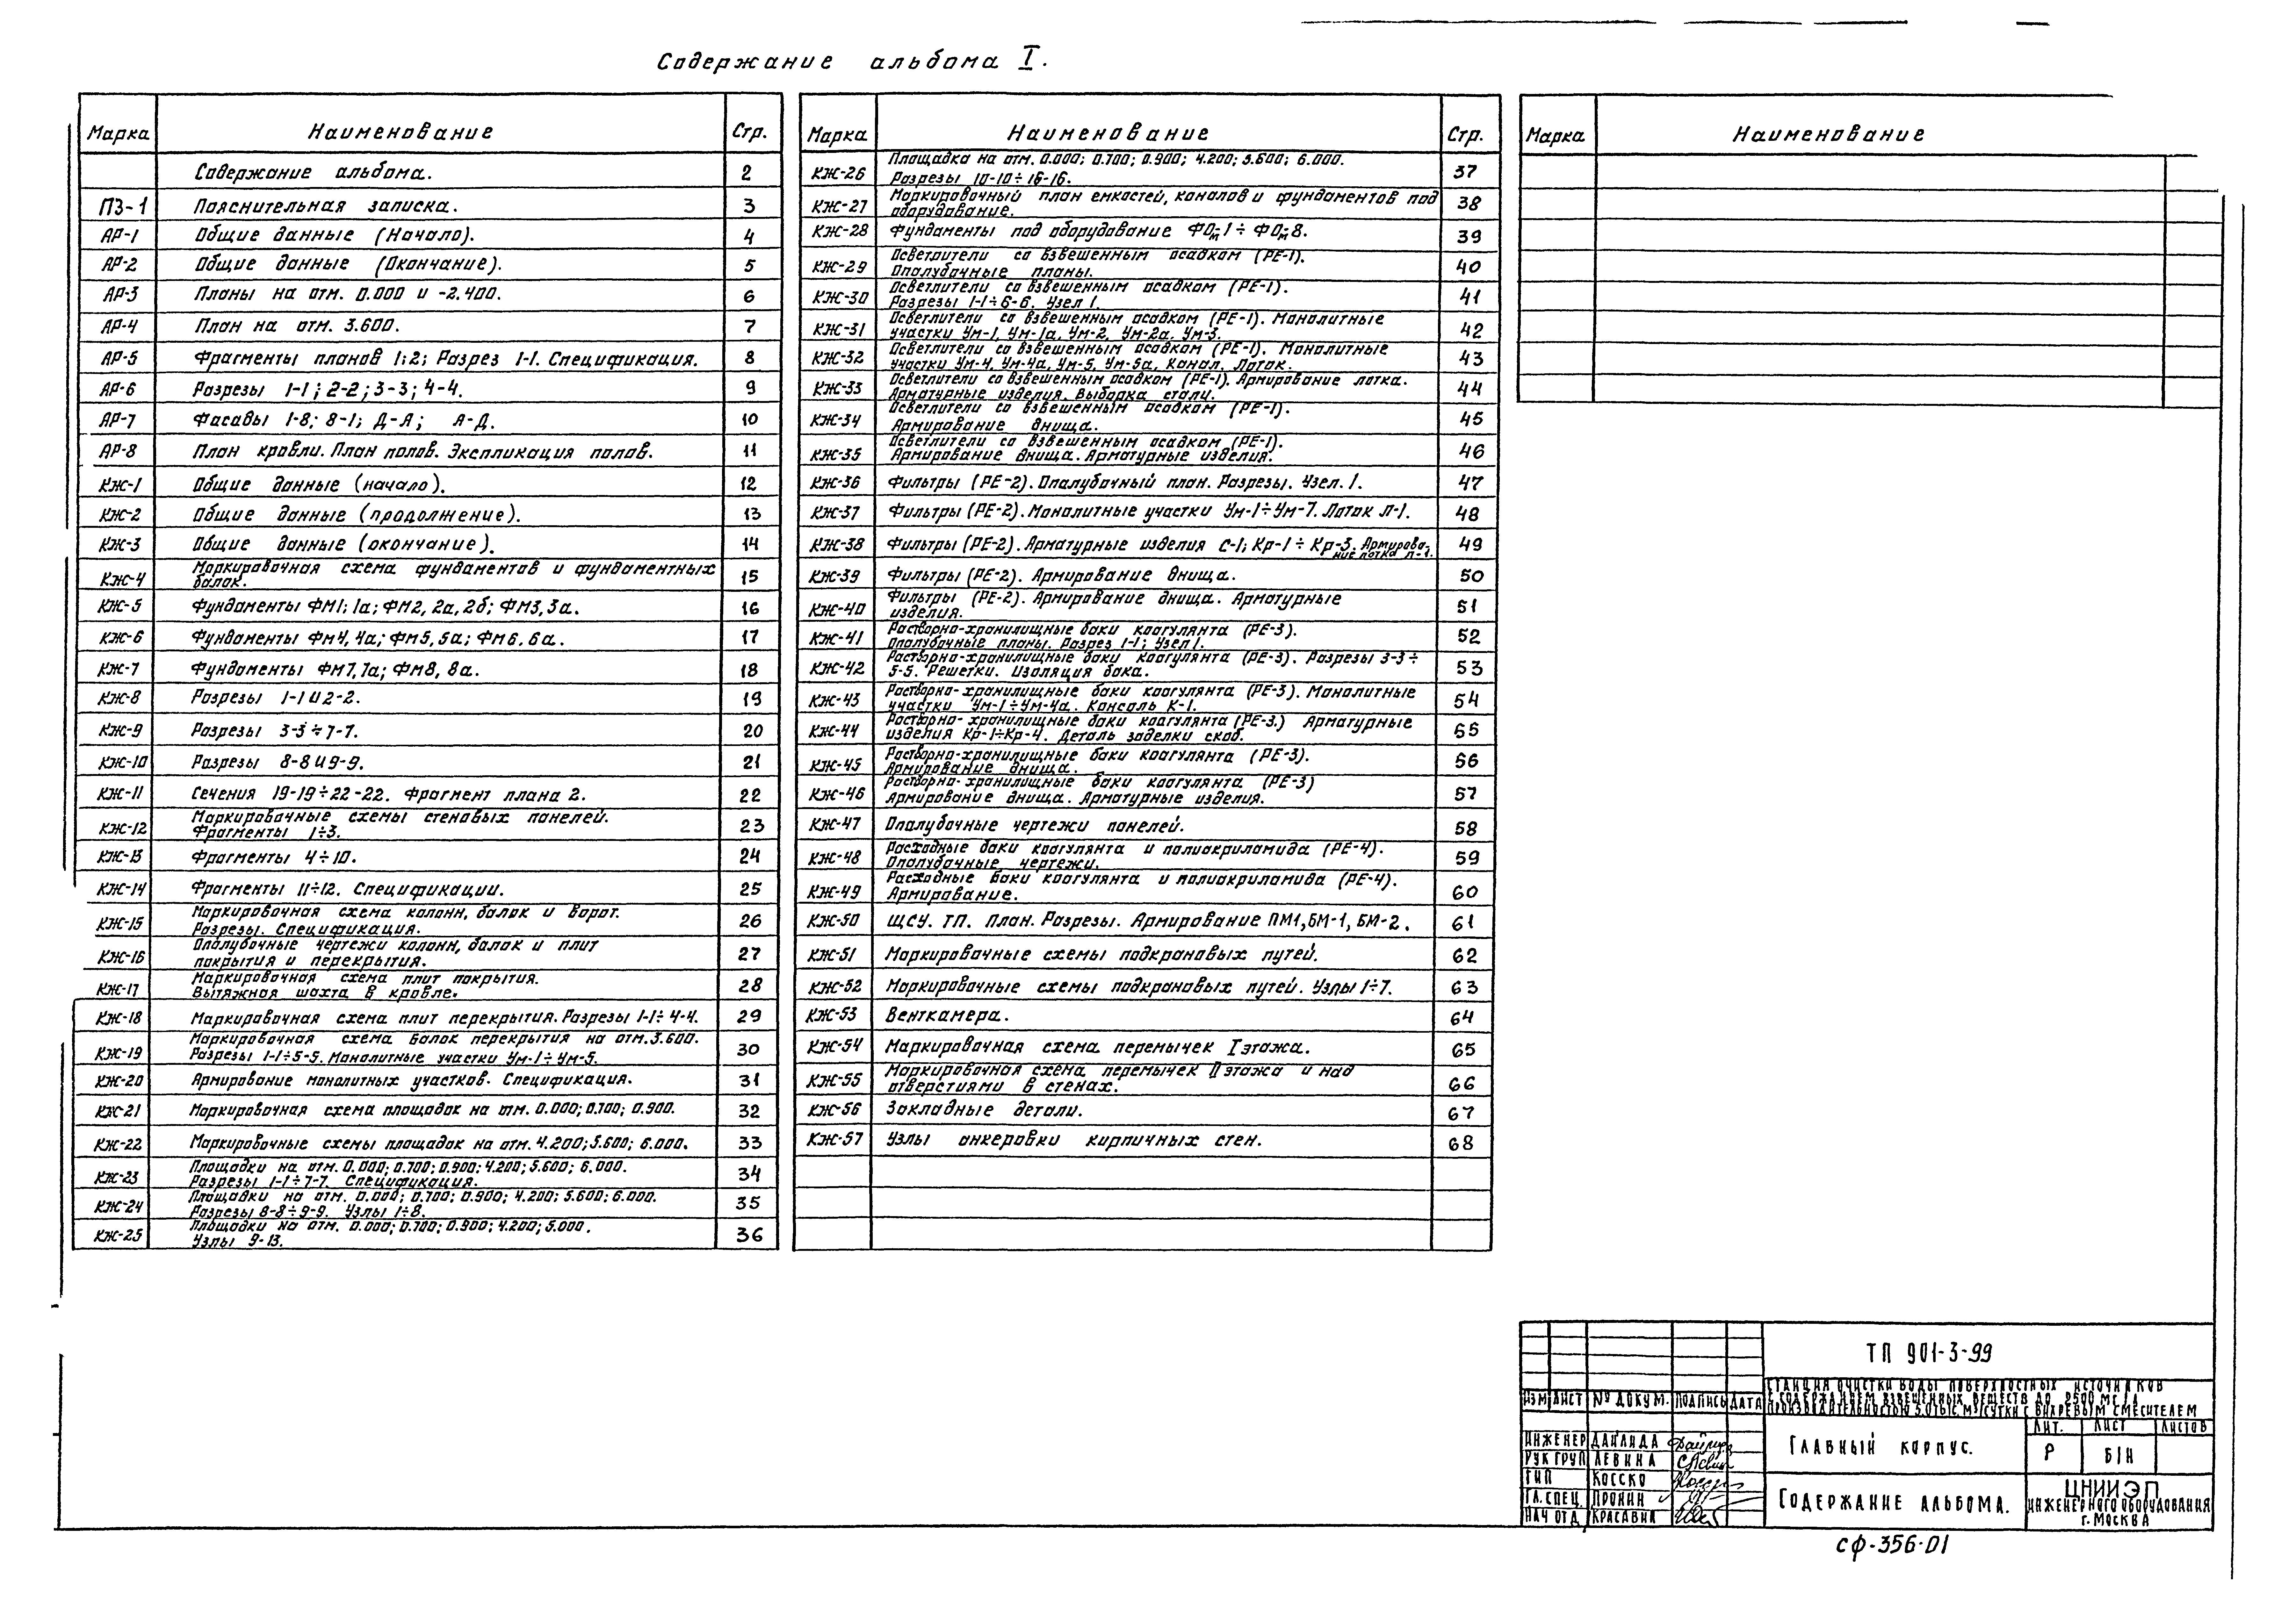 Содержание альбома I.
Марка Наименование Стр.
Содержание альбома. 2
ПЗ-1 Пояснительная записка. 3
АР-1 Общие данные (Начало). 4
АР-2 Общие данные (Окончание). 5
АР-3 Планы на отм. 0.000 и -2.400. 6
АР-4 План на отм. 3.600. 7
АР-5 Фрагменты планов 1;2; Разрез 1-1. Спецификация. 8
АР-6 Разрезы 1-1; 2-2; 3-3; 4-4. 9
АР-7 Фасады 1-8; 8-1; Д-А; А-Д. 10
АР-8 План кровли. План полов. Экспликация полов. 11
КЖ-1 Общие данные (начало). 12
КЖ-2 Общие данные (продолжение). 13
КЖ-3 Общие данные (окончание). 14
КЖ-4 Маркировочная схема фундаментов и фундаментных
балок. 15
КЖ-5 Фундаменты ФМ1; 1а; ФМ2, 2а, 2б; ФМ3, 3а. 16
КЖ-6 Фундаменты Фм4, 4а; Фм5, 5а; Фм6, 6а. 17
КЖ-7 Фундаменты ФМ7, 7а; ФМ8, 8а. 18
КЖ-8 Разрезы 1-1 и 2-2. 19
КЖ-9 Разрезы 3-3÷7-7. 20
КЖ-10 Разрезы 8-8 и 9-9. 21
КЖ-11 Сечения 19-19÷22-22. Фрагмент плана 2. 22
КЖ-12 Маркировочные схемы стеновых панелей.
Фрагменты 1÷3. 23
КЖ-13 Фрагменты 4÷10. 24
КЖ-14 Фрагменты 11÷12. Спецификации. 25
КЖ-15 Маркировочная схема колонн, балок и ворот.
Разрезы. Спецификация. 26
КЖ-16 Опалубочные чертежи колонн, балок и плит
покрытия и перекрытия. 27
КЖ-17 Маркировочная схема плит покрытия.
Вытяжная шахта в кровле. 28
КЖ-18 Маркировочная схема плит перекрытия. Разрезы 1-1÷4-4. 29
КЖ-19 Маркировочная схема балок перекрытия на отм. 3.600.
Разрезы 1-1÷5-5. Монолитные участки Ум-1÷Ум-5. 30
КЖ-20 Армирование монолитных участков. Спецификация. 31
КЖ-21 Маркировочная схема площадок на отм. 0.000; 0.700; 0.900. 32
КЖ-22 Маркировочные схемы площадок на отм. 4.200; 5.600; 6.000. 33
КЖ-23 Площадки на отм. 0.000; 0.700; 0.900; 4.200; 5.600; 6.000.
Разрезы 1-1÷7-7. Спецификация. 34
КЖ-24 Площадки на отм. 0.000; 0.700; 0.900; 4.200; 5.600; 6.000.
Разрезы 8-8÷9-9. Узлы 1÷8. 35
КЖ-25 Площадки на отм. 0.000; 0.700; 0.900; 4.200; 5.000.
Узлы 9-13. 36
Марка Наименование Стр.
КЖ-26 Площадка на отм. 0.000; 0.700; 0.900; 4.200; 5.600; 6.000.
Разрезы 10-10÷16-16. 37
КЖ-27 Маркировочный план емкостей, каналов и фундаментов под
оборудование. 38
КЖ-28 Фундаменты под оборудование ФОм-1÷ФОм-8. 39
КЖ-29 Осветлители со взвешенным осадком (РЕ-1).
Опалубочные планы. 40
КЖ-30 Осветлители со взвешенным осадком (РЕ-1).
Разрезы 1-1÷6-6. Узел 1. 41
КЖ-31 Осветлители со взвешенным осадком (РЕ-1). Монолитные
участки Ум-1, Ум-1а, Ум-2, Ум-2а, Ум-3. 42
КЖ-32 Осветлители со взвешенным осадком (РЕ-1). Монолитные
участки Ум-4, Ум-4а, Ум-5, Ум-5а. Канал. Лоток. 43
КЖ-33 Осветлители со взвешенным осадком (РЕ-1). Армирование лотка.
Арматурные изделия. Выборка стали. 44
КЖ-34 Осветлители со взвешенным осадком (РЕ-1).
Армирование днища. 45
КЖ-35 Осветлители со взвешенным осадком (РЕ-1).
Армирование днища. Арматурные изделия. 46
КЖ-36 Фильтры (РЕ-2). Опалубочный план. Разрезы. Узел. 1. 47
КЖ-37 Фильтры (РЕ-2). Монолитные участки Ум-1÷Ум-7. Лоток Л-1. 48
КЖ-38 Фильтры (РЕ-2). Арматурные изделия С-1; Кр-1÷Кр-3. Армирова-
ние лотка Л-1. 49
КЖ-39 Фильтры (РЕ-2). Армирование днища. 50
КЖ-40 Фильтры (РЕ-2). Армирование днища. Арматурные
изделия. 51
КЖ-41 Растворно-хранилищные баки коагулянта (РЕ-3).
Опалубочные планы. Разрез 1-1; Узел 1. 52
КЖ-42 Растворно-хранилищные баки коагулянта (РЕ-3). Разрезы 3-3÷
5-5. Решетки. Изоляция бака. 53
КЖ-43 Растворно-хранилищные баки коагулянта (РЕ-3). Монолитные
участки Ум-1÷Ум-4а. Консоль К-1. 54
КЖ-44 Растворно-хранилищные баки коагулянта (РЕ-3.) Арматурные
изделия Кр-1÷Кр-4. Деталь заделки скоб. 55
КЖ-45 Растворно-хранилищные баки коагулянта (РЕ-3).
Армирование днища. 56
КЖ-46 Растворно-хранилищные баки коагулянта (РЕ-3)
Армирование днища. Арматурные изделия. 57
КЖ-47 Опалубочные чертежи панелей. 58
КЖ-48 Расходные баки коагулянта и полиакриламида (РЕ-4).
Опалубочные чертежи. 59
КЖ-49 Расходные баки коагулянта и полиакриламида (РЕ-4).
Армирование. 60
КЖ-50 ЩСУ. ТП. План. Разрезы. Армирование ПМ1, БМ-1, БМ-2. 61
КЖ-51 Маркировочные схемы подкрановых путей. 62
КЖ-52 Маркировочные схемы подкрановых путей. Узлы 1÷7. 63
КЖ-53 Венткамера. 64
КЖ-54 Маркировочная схема перемычек I этажа. 65
КЖ-55 Маркировочная схема перемычек II этажа и над
отверстиями в стенах. 66
КЖ-56 Закладные детали. 67
КЖ-57 Узлы анкеровки кирпичных стен. 68
Марка Наименование
ТП 901-3-99
СТАНЦИЯ ОЧИСТКИ ВОДЫ ПОВЕРХНОСТНЫХ ИСТОЧНИКОВ
С СОДЕРЖАНИЕМ ВЗВЕШЕННЫХ ВЕЩЕСТВ ДО 2500 МГ/Л
ПРОИЗВОДИТЕЛЬНОСТЬЮ 5.0 ТЫС. М³/СУТКИ С ВИХРЕВЫМ СМЕСИТЕЛЕМ
ИЗМ ЛИСТ № ДОКУМ. ПОДПИСЬ ДАТА
ИНЖЕНЕР
РУК ГРУП ЛЕВИНА
ГИП КОССКО
ГЛ. СПЕЦ. ПРОНИН
НАЧ ОТД КРАСАВИН
ГЛАВНЫЙ КОРПУС.
ЛИТ. ЛИСТ ЛИСТОВ
Р Б/Н
СОДЕРЖАНИЕ АЛЬБОМА.
ЦНИИЭП
ИНЖЕНЕРНОГО ОБОРУДОВАНИЯ
г. МОСКВА
сф-356-01